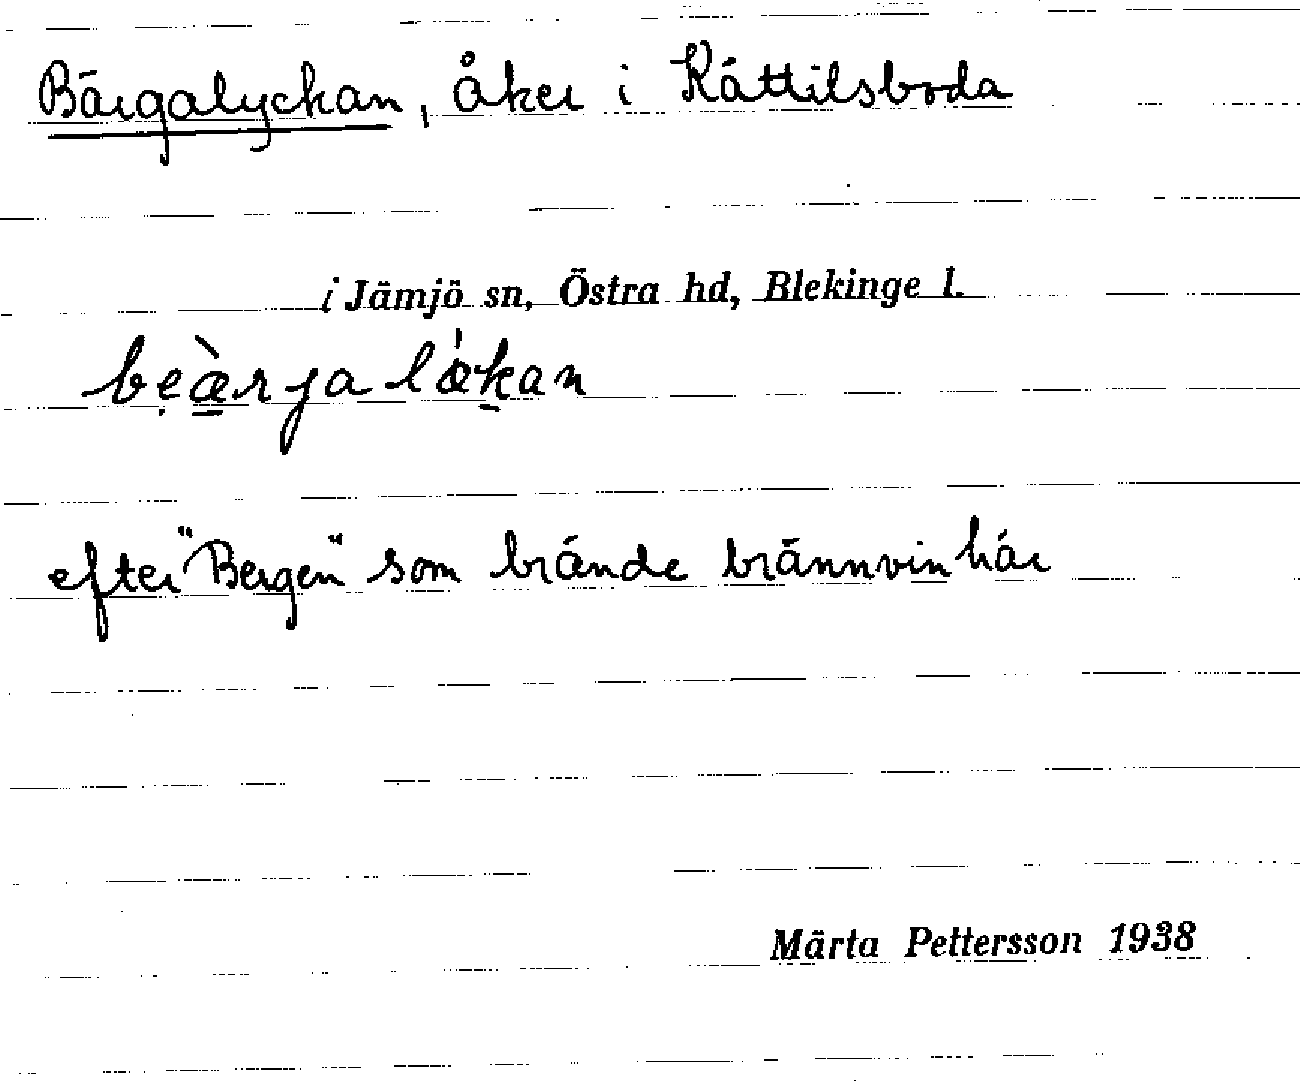 Bärgalyckan, åker i Kättilsboda
i Jämjö sn, Östra hd, Blekinge l.
bẹæ̀rja lǿkan
efter "Bergen" som brände brännvin här
Märta Pettersson 1938